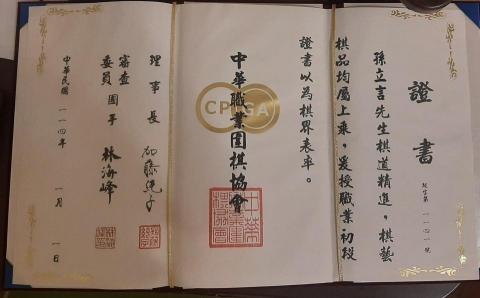 證書
孫立言先生棋道精進，棋藝
棋品均屬上乘，爰授職業初段
證書以為棋界表率。
CPGA
中華職業圍棋協會
理事長
審查
委員 國手 林海峰
中華民國 一一四年 一月 一日